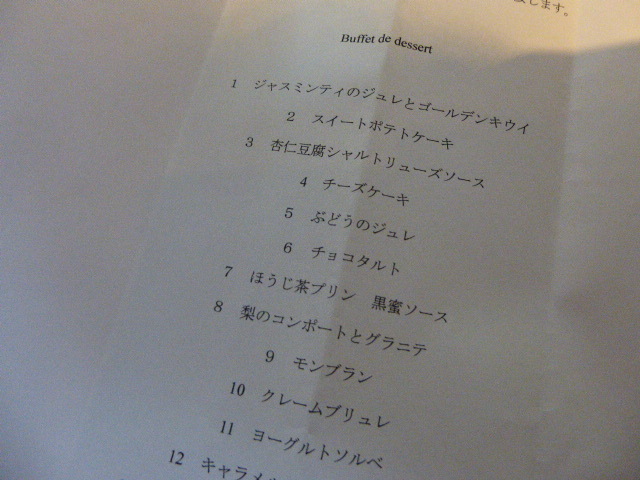 します。
Buffet de dessert
1 ジャスミンティのジュレとゴールデンキウイ
2 スイートポテトケーキ
3 杏仁豆腐シャルトリューズソース
4 チーズケーキ
5 ぶどうのジュレ
6 チョコタルト
7 ほうじ茶プリン 黒蜜ソース
8 梨のコンポートとグラニテ
9 モンブラン
10 クレームブリュレ
11 ヨーグルトソルベ
12 キャラメル